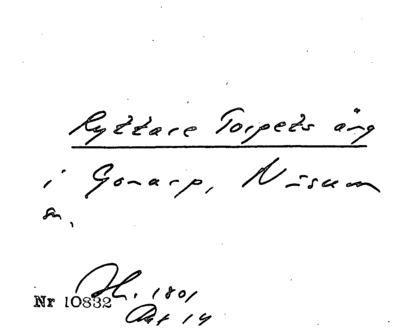 Ryttare Torpets äng
i Gonarp, Näsum
sn.
Sh. 1801
Nr 10832
Akt 14